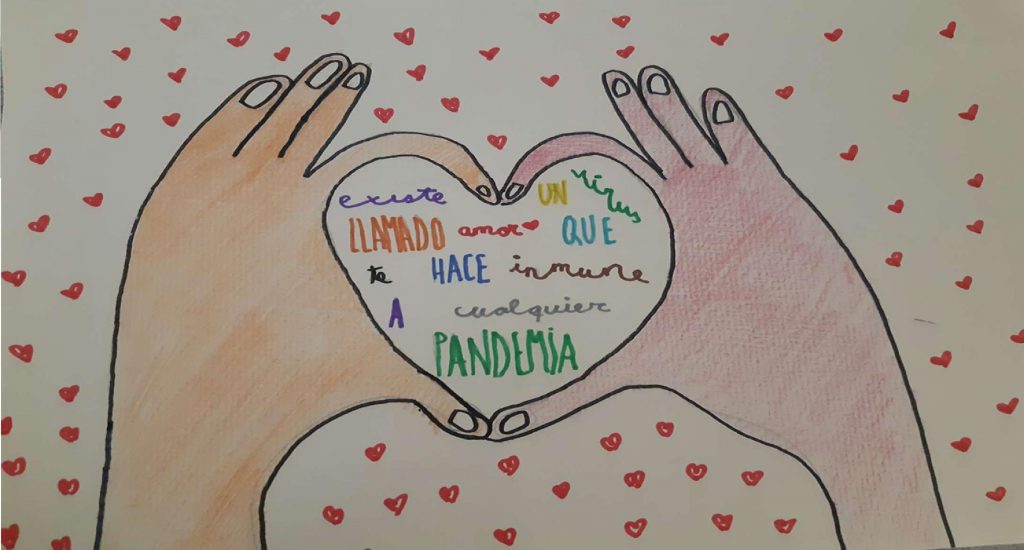 existe UN virus
LLAMADO amor QUE
te HACE inmune
A cualquier
PANDEMIA